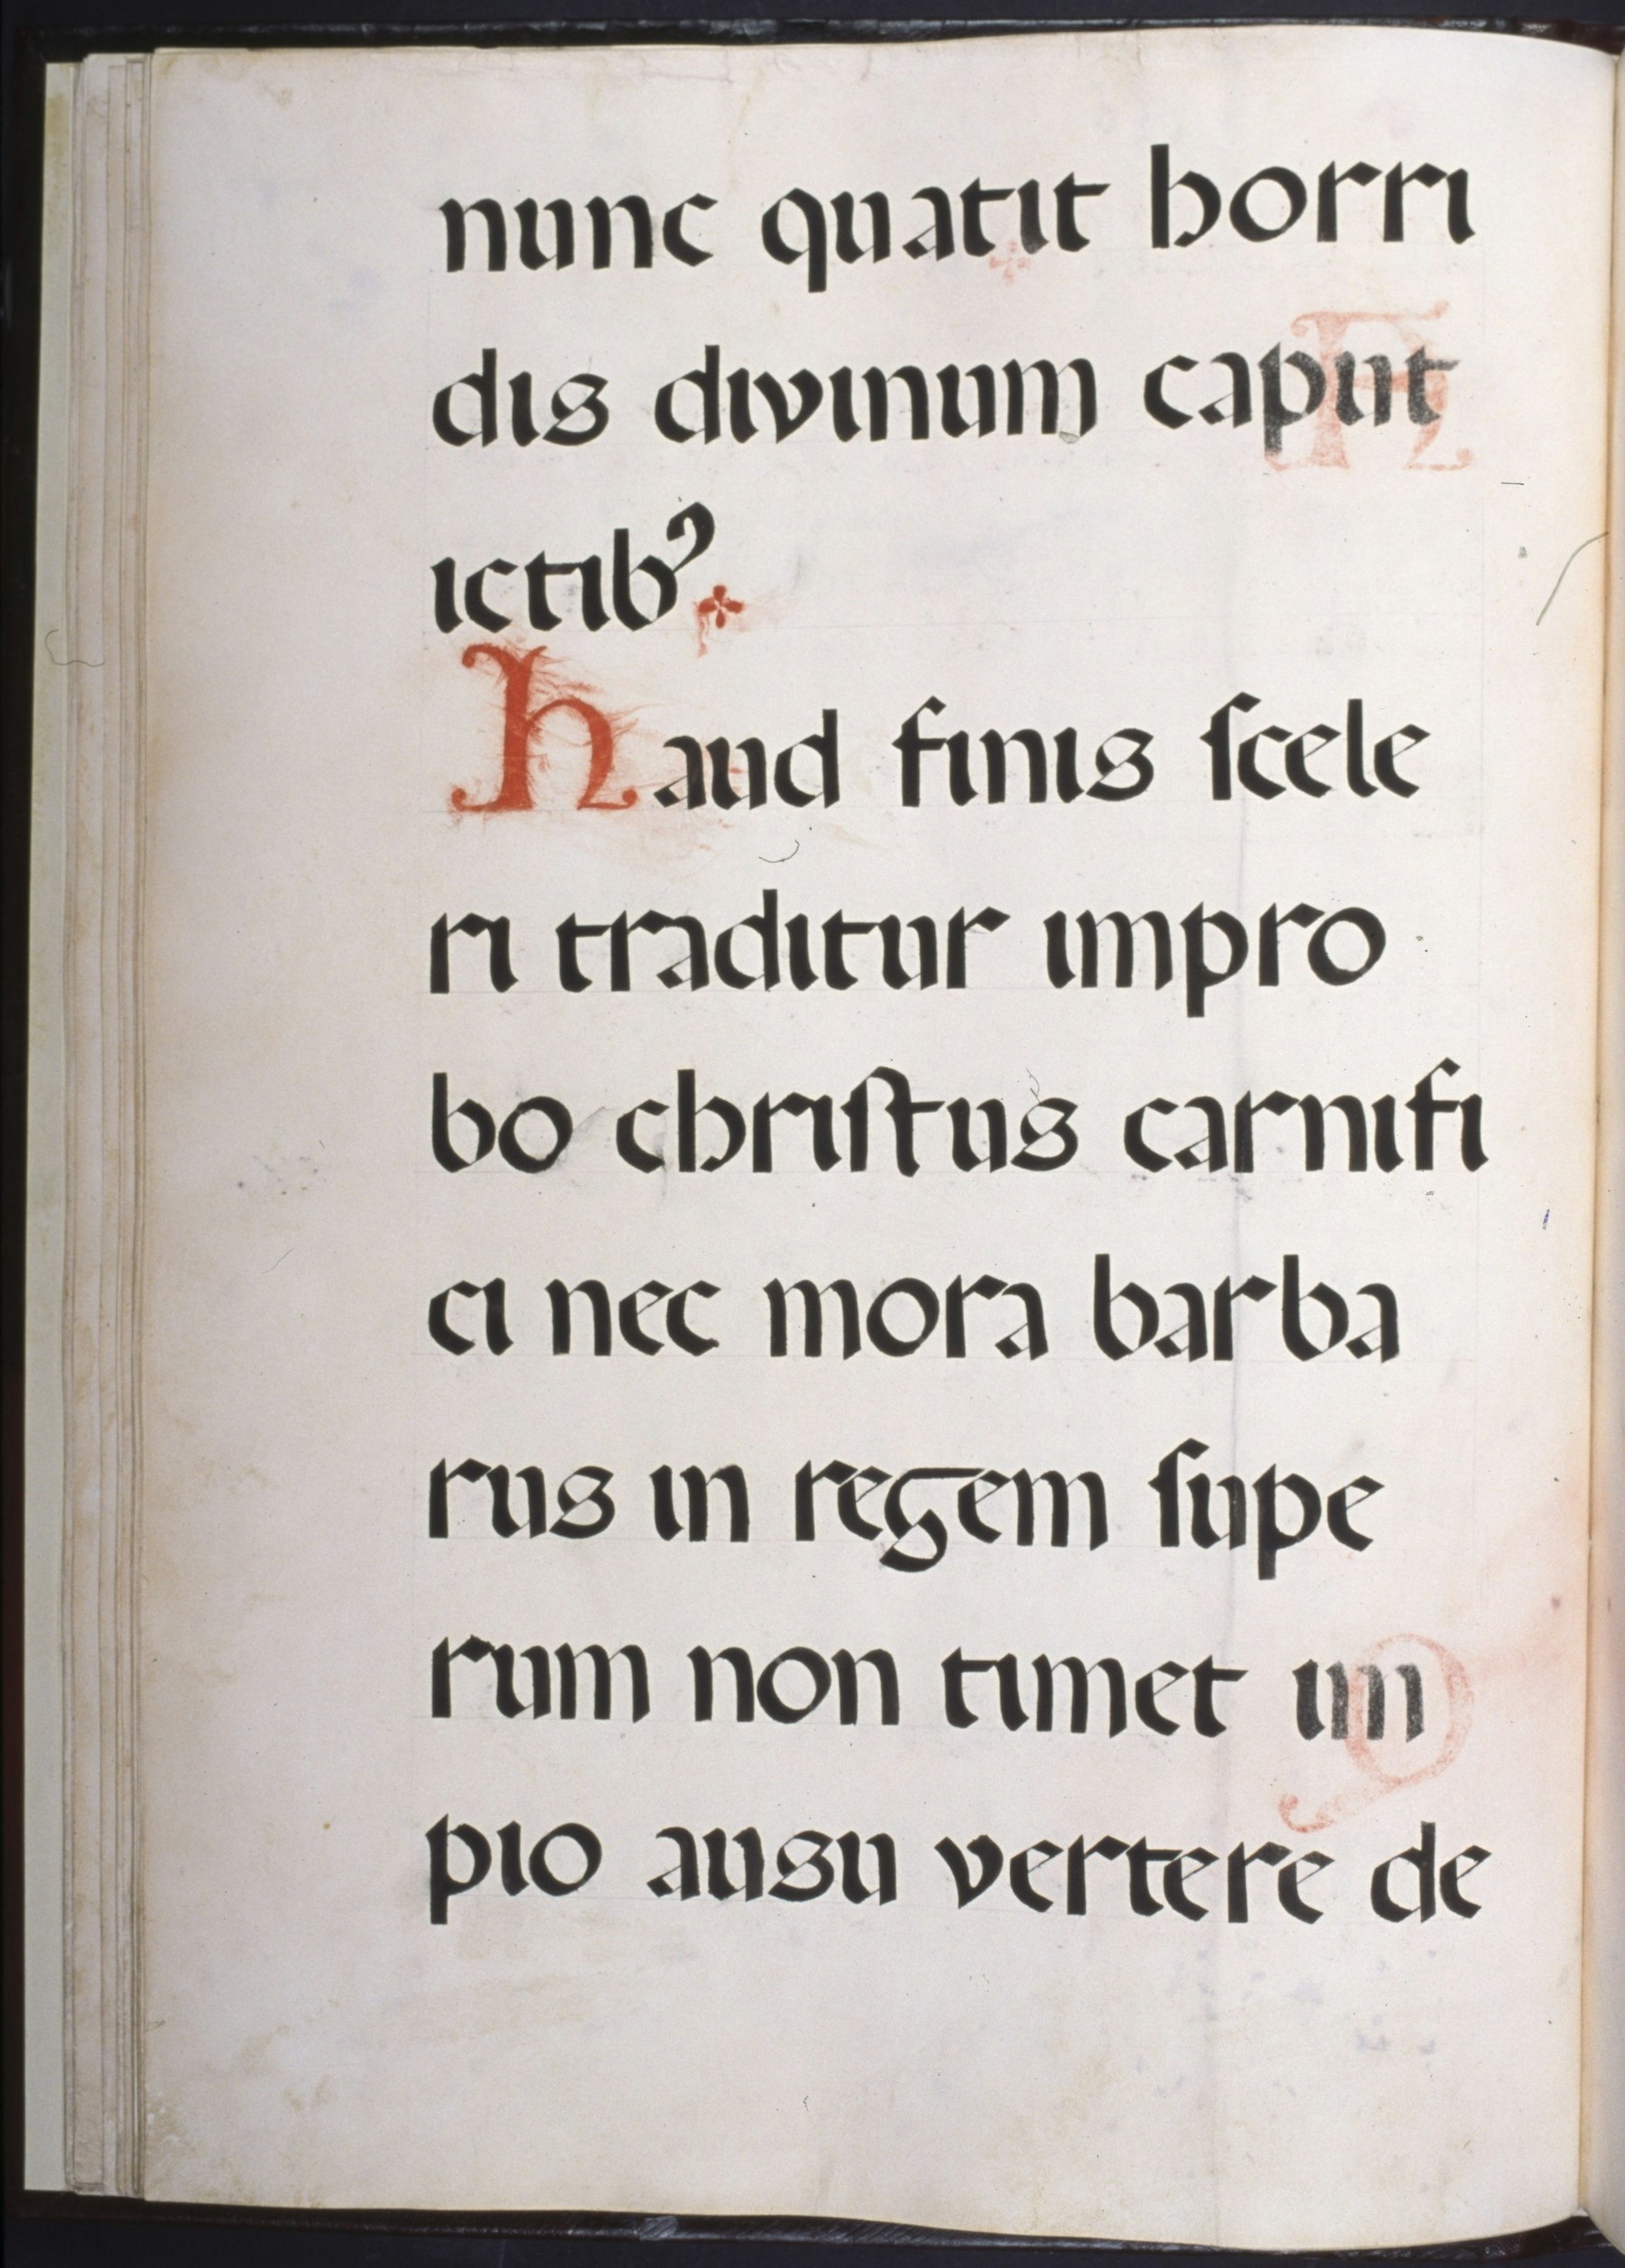 nunc quatit horri
dis divinum caput
ictibꝰ
haud finis ſcele
ri traditur impro
bo chriſtus carnifi
ci nec mora barba
rus in regem ſupe
rum non timet im
pio ausu vertere de